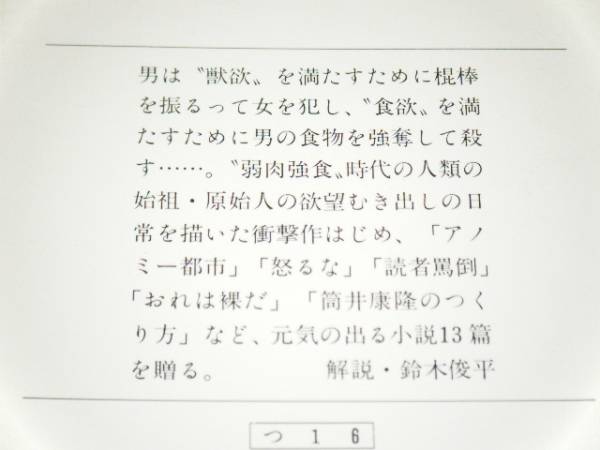 男は〝獣欲〟を満たすために棍棒
を振るって女を犯し、〝食欲〟を満
たすために男の食物を強奪して殺
す……。〝弱肉強食〟時代の人類の
始祖・原始人の欲望むき出しの日
常を描いた衝撃作はじめ、「アノ
ミー都市」「怒るな」「読者罵倒」
「おれは裸だ」「筒井康隆のつく
り方」など、元気の出る小説13篇
を贈る。　　　　　解説・鈴木俊平
つ 1 6